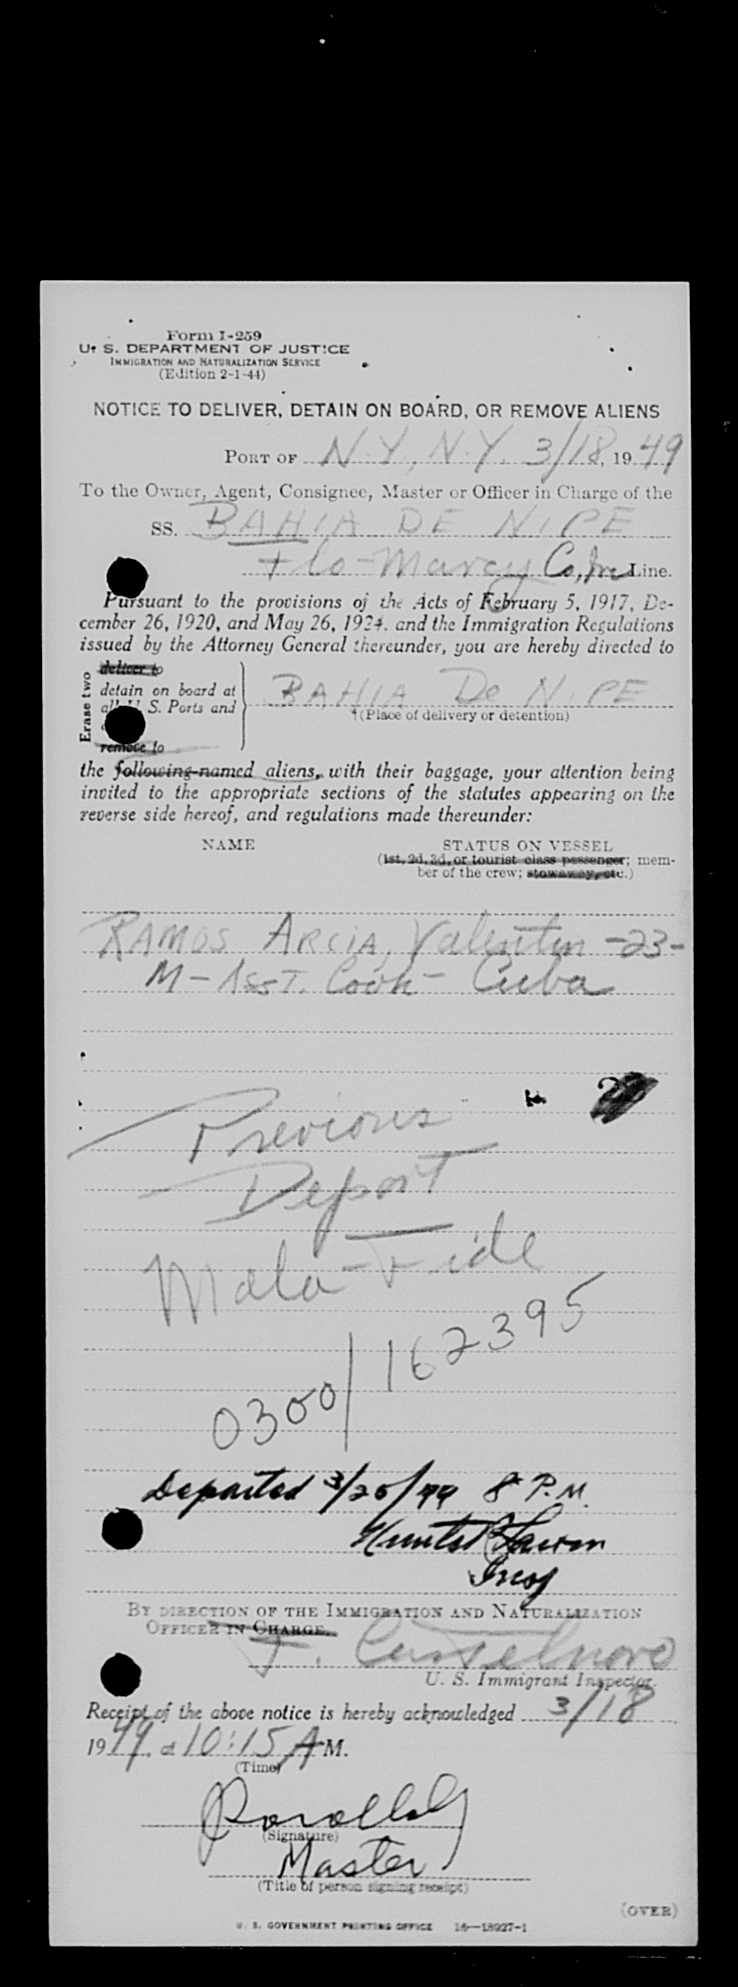 Form I-259
U. S. DEPARTMENT OF JUSTICE
IMMIGRATION AND NATURALIZATION SERVICE
(Edition 2-1-44)
NOTICE TO DELIVER, DETAIN ON BOARD, OR REMOVE ALIENS
PORT OF N.Y., N.Y. 3/18, 1949
To the Owner, Agent, Consignee, Master or Officer in Charge of the
SS. BAHIA DE NIPE
Flo-Marcy Co, Inc Line.
Pursuant to the provisions of the Acts of February 5, 1917, De-
cember 26, 1920, and May 26, 1924, and the Immigration Regulations
issued by the Attorney General thereunder, you are hereby directed to
Erase two
deliver to
detain on board at
all U. S. Ports and
remove to
BAHIA De NIPE
(Place of delivery or detention)
the following-named aliens, with their baggage, your attention being
invited to the appropriate sections of the statutes appearing on the
reverse side hereof, and regulations made thereunder:
NAME STATUS ON VESSEL
(1st, 2d, 3d, or tourist class passenger; mem-
ber of the crew; stowaway, etc.)
RAMOS ARCIA, Valentin -23-
M- Asst. Cook- Cuba
Previous
Deport
Mala-Fide
0300/162395
Departed 3/20/49 8 P.M.
Insp
BY DIRECTION OF THE IMMIGRATION AND NATURALIZATION
OFFICER IN CHARGE.
U. S. Immigrant Inspector.
Receipt of the above notice is hereby acknowledged 3/18
1949, at 10:15 AM.
(Time)
(Signature)
Master
(Title of person signing receipt)
(OVER)
U. S. GOVERNMENT PRINTING OFFICE 16—18927-1